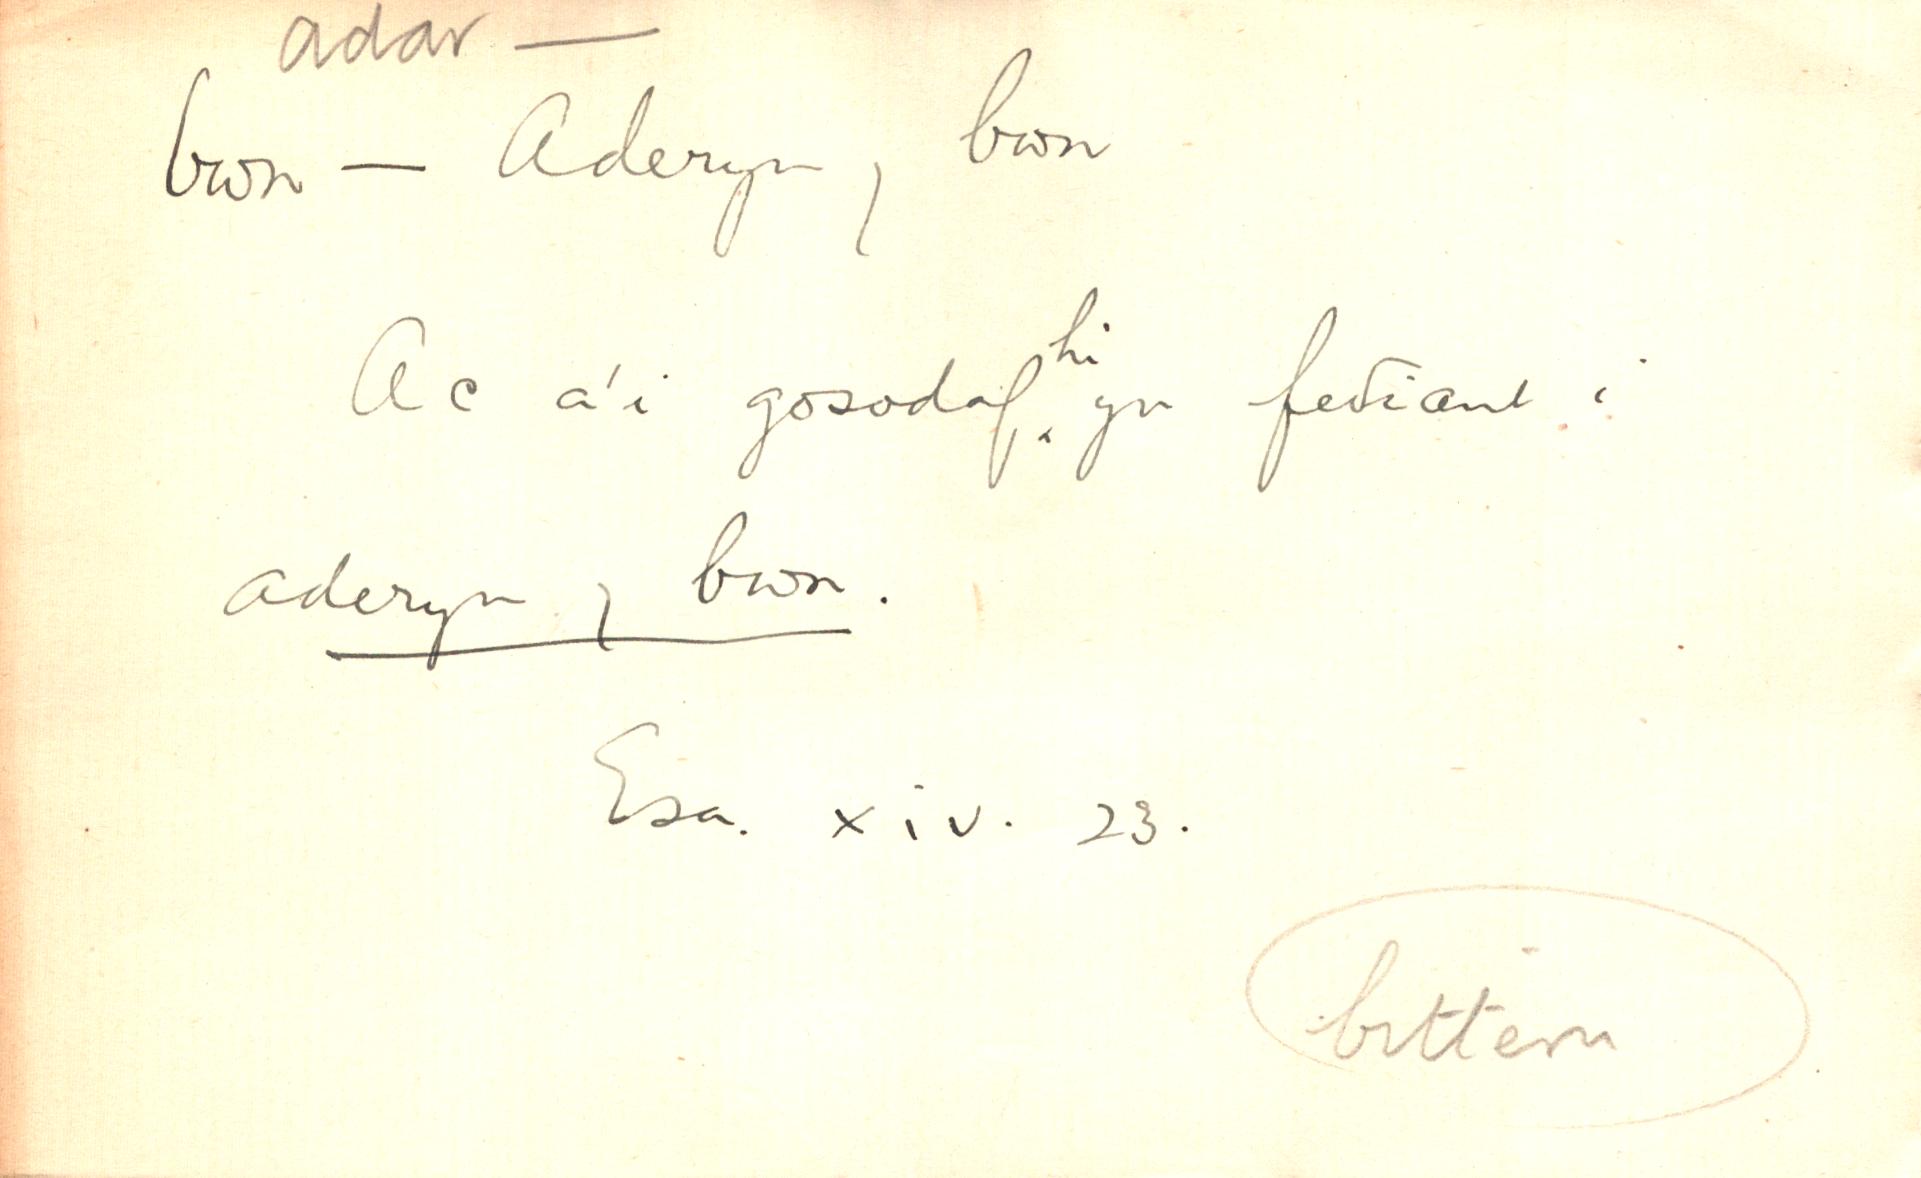 adar —
bwn — Aderyn y bwn
Ac a'i gosodaf hi yn feðiant i
aderyn y bwn.
Esa. xiv. 23.
bittern